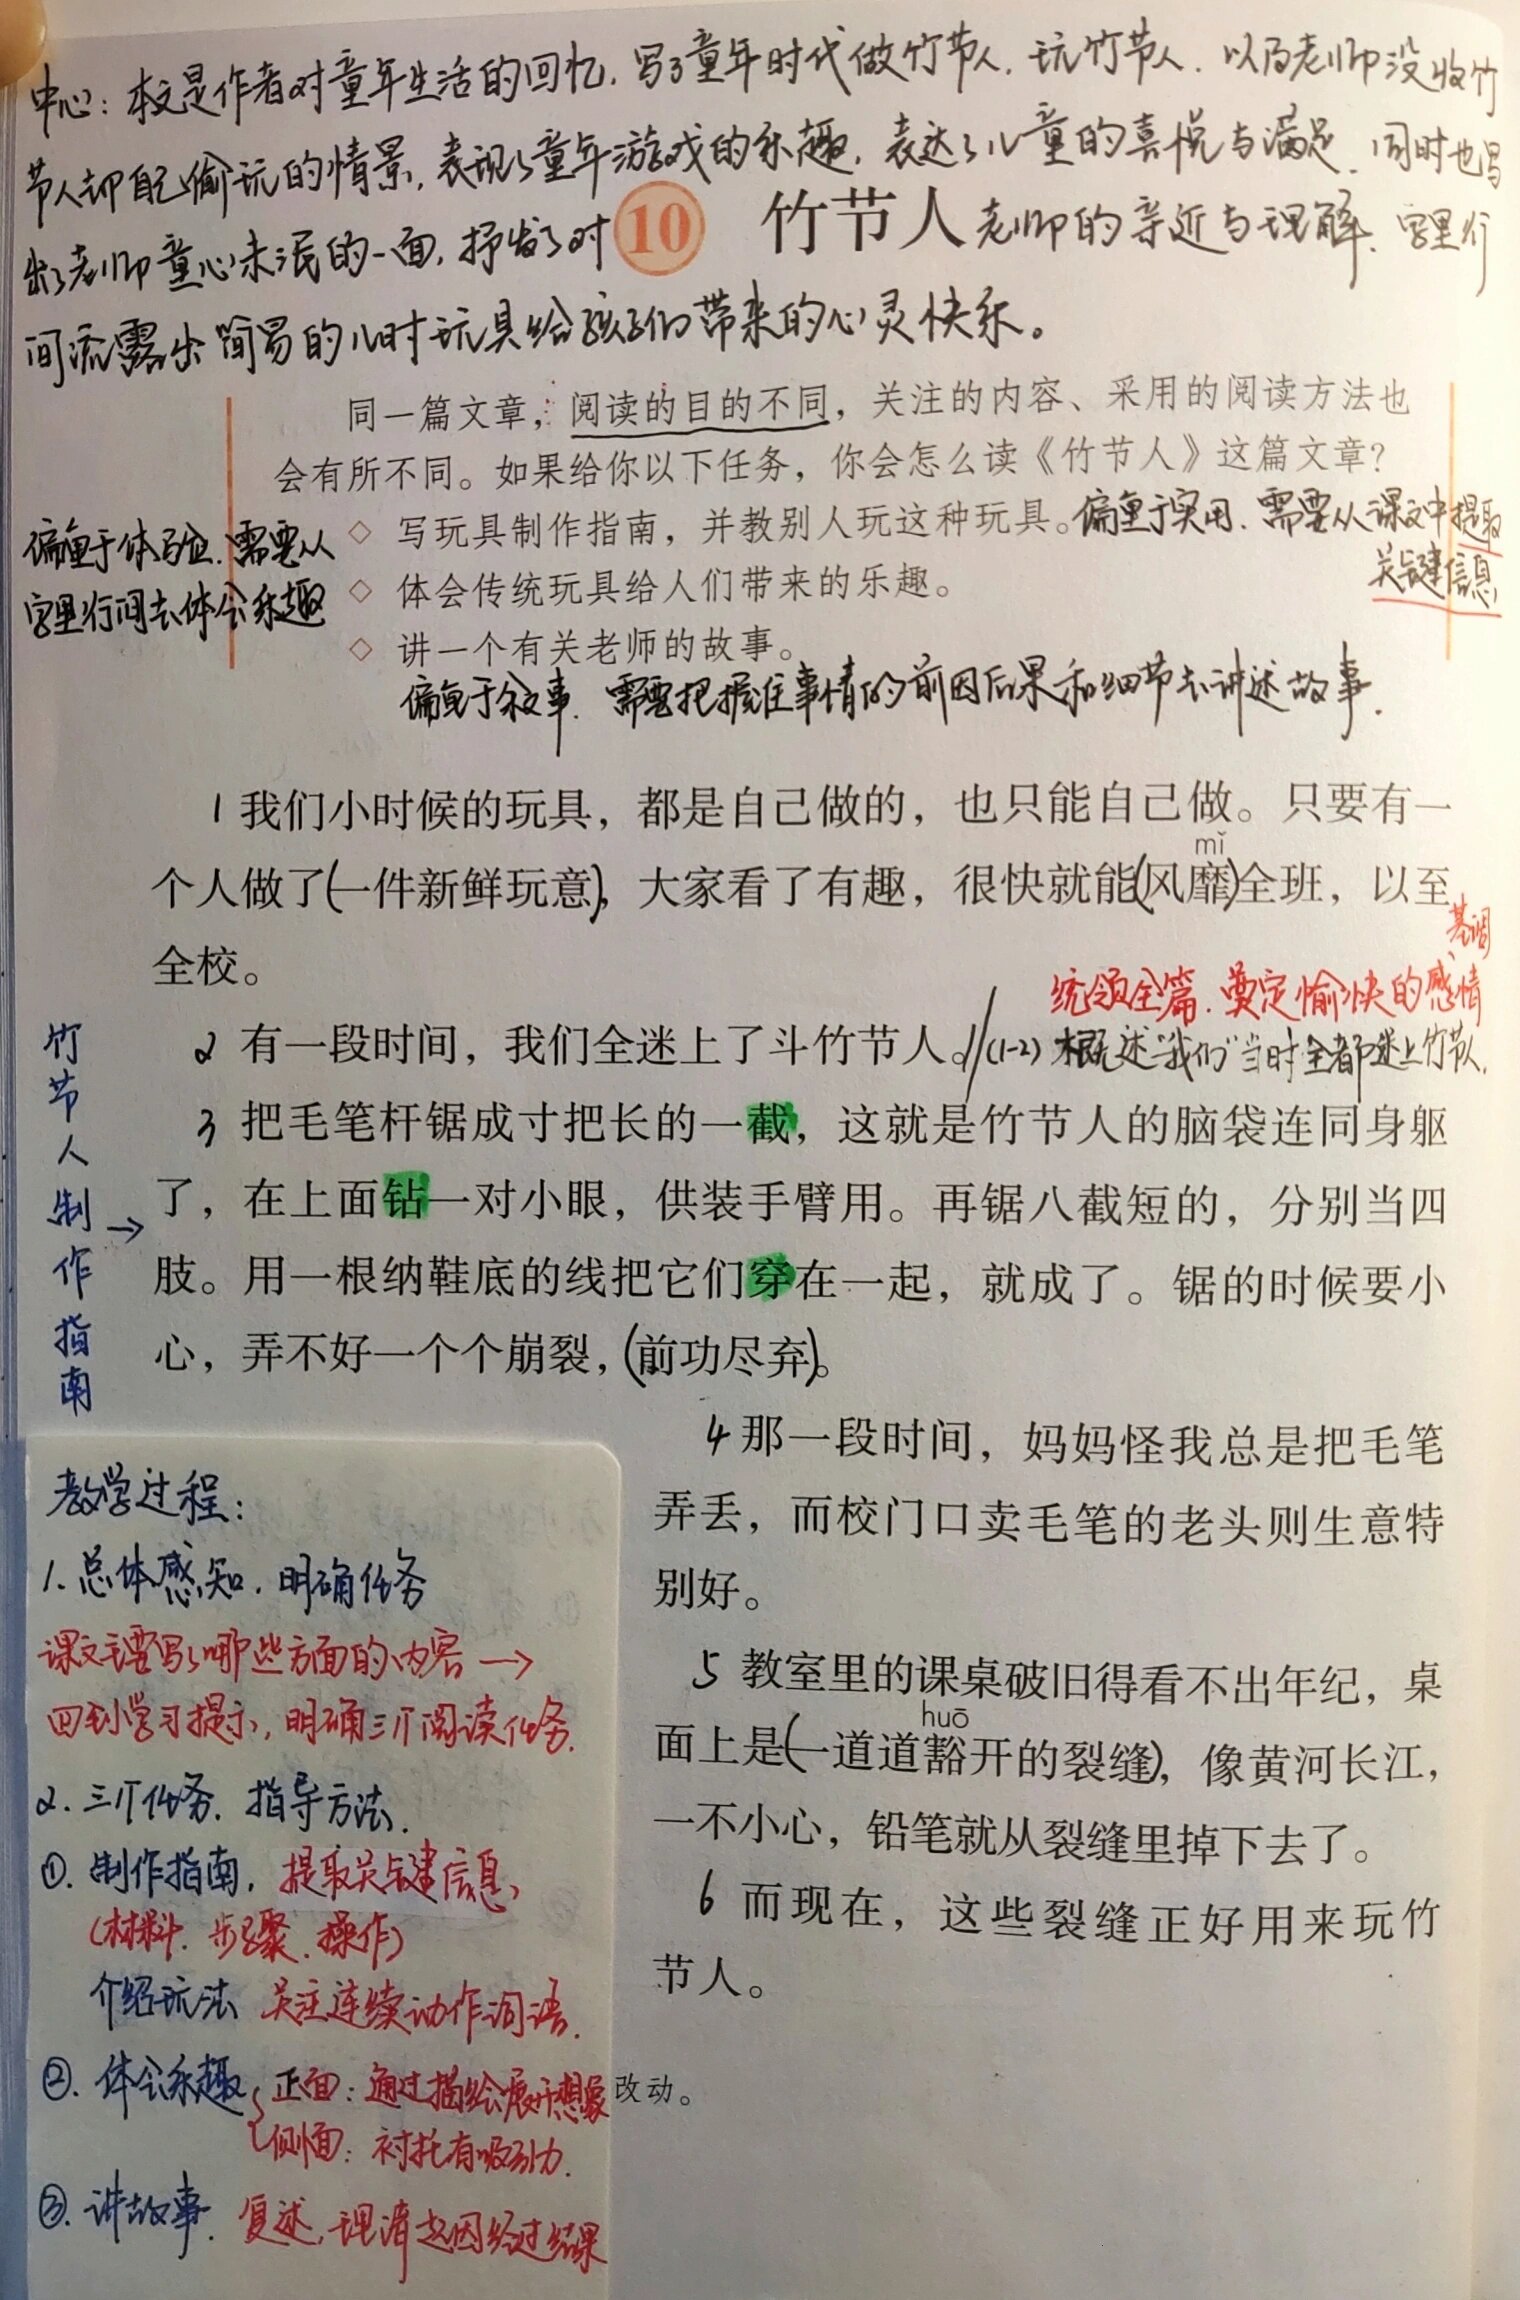 中心：本文是作者对童年生活的回忆，写了童年时代做竹节人，玩竹节人，以及老师没收竹
节人却自己偷玩的情景，表现了童年游戏的乐趣，表达了儿童的喜悦与满足，同时也写
出了老师童心未泯的一面，抒发了对老师的亲近与理解，字里行
间流露出简易的儿时玩具给孩子们带来的心灵快乐。
10 竹节人
同一篇文章，阅读的目的不同，关注的内容、采用的阅读方法也
会有所不同。如果给你以下任务，你会怎么读《竹节人》这篇文章？
◇ 写玩具制作指南，并教别人玩这种玩具。
偏重于实用，需要从课文中提取
关键信息
◇ 体会传统玩具给人们带来的乐趣。
偏重于体验，需要从
字里行间去体会乐趣
◇ 讲一个有关老师的故事。
偏重于叙事，需要把握准事情的前因后果和细节去讲述故事。
1 我们小时候的玩具，都是自己做的，也只能自己做。只要有一
mǐ
个人做了(一件新鲜玩意)，大家看了有趣，很快就能(风靡)全班，以至
全校。
基调
统领全篇，奠定愉快的感情
2 有一段时间，我们全迷上了斗竹节人。//(1-2) 概述“我们”当时全都迷上竹节人.
3 把毛笔杆锯成寸把长的一截，这就是竹节人的脑袋连同身躯
了，在上面钻一对小眼，供装手臂用。再锯八截短的，分别当四
肢。用一根纳鞋底的线把它们穿在一起，就成了。锯的时候要小
心，弄不好一个个崩裂，(前功尽弃)。
竹节人制作指南→
4 那一段时间，妈妈怪我总是把毛笔
弄丢，而校门口卖毛笔的老头则生意特
别好。
5 教室里的课桌破旧得看不出年纪，桌
huō
面上是(一道道豁开的裂缝)，像黄河长江，
一不小心，铅笔就从裂缝里掉下去了。
6 而现在，这些裂缝正好用来玩竹
节人。
改动。
教学过程：
1. 总体感知，明确任务
课文主要写了哪些方面的内容→
回到学习提示，明确三个阅读任务.
2. 三个任务，指导方法.
①. 制作指南，提取关键信息，
(材料、步骤、操作)
介绍玩法 关注连续动作词语.
②. 体会乐趣{正面：通过描绘展开想象
侧面：衬托有吸引力.
③. 讲故事. 复述，理清起因经过结果